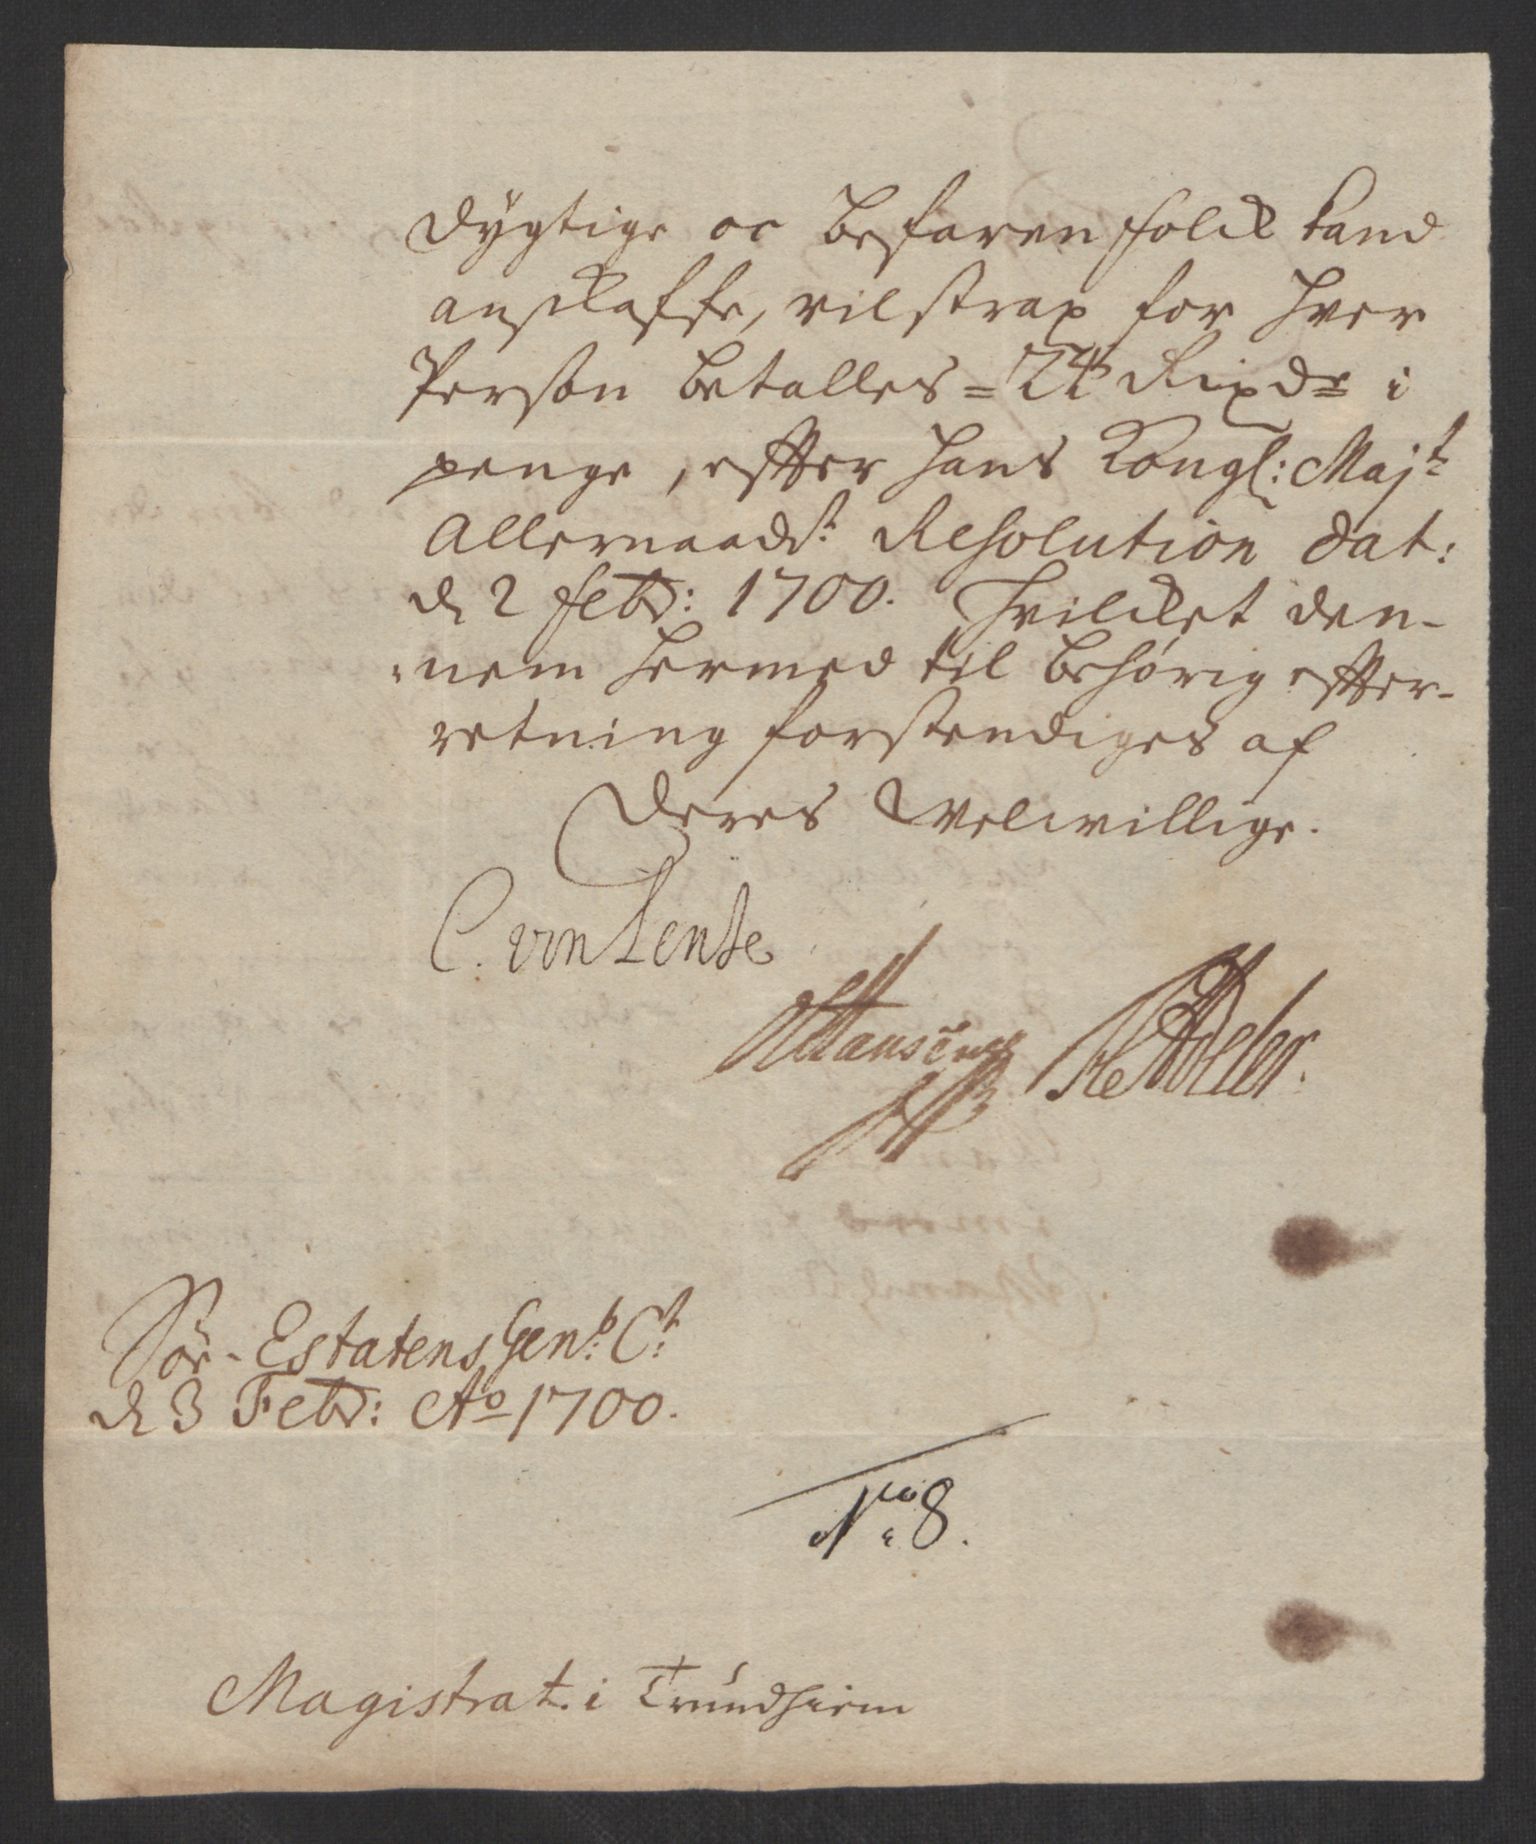 dygtige oc befaren folck kand
anskaffe, vil strax for hver
Person betalles = 24 Rixdr i
penge, effter Hans Kongl: Majt
Allernaadst Resolution dat:
d 2 Febr: 1700. Hvilcket den-
nem hermed til behørig effter-
retning forstendiges af
Deres Velwillige.
C. von Lente
Söe-Estatens Gen: Ct
d 3 Febr: Ao 1700.
No 8.
Magistrat: i Trundhiem